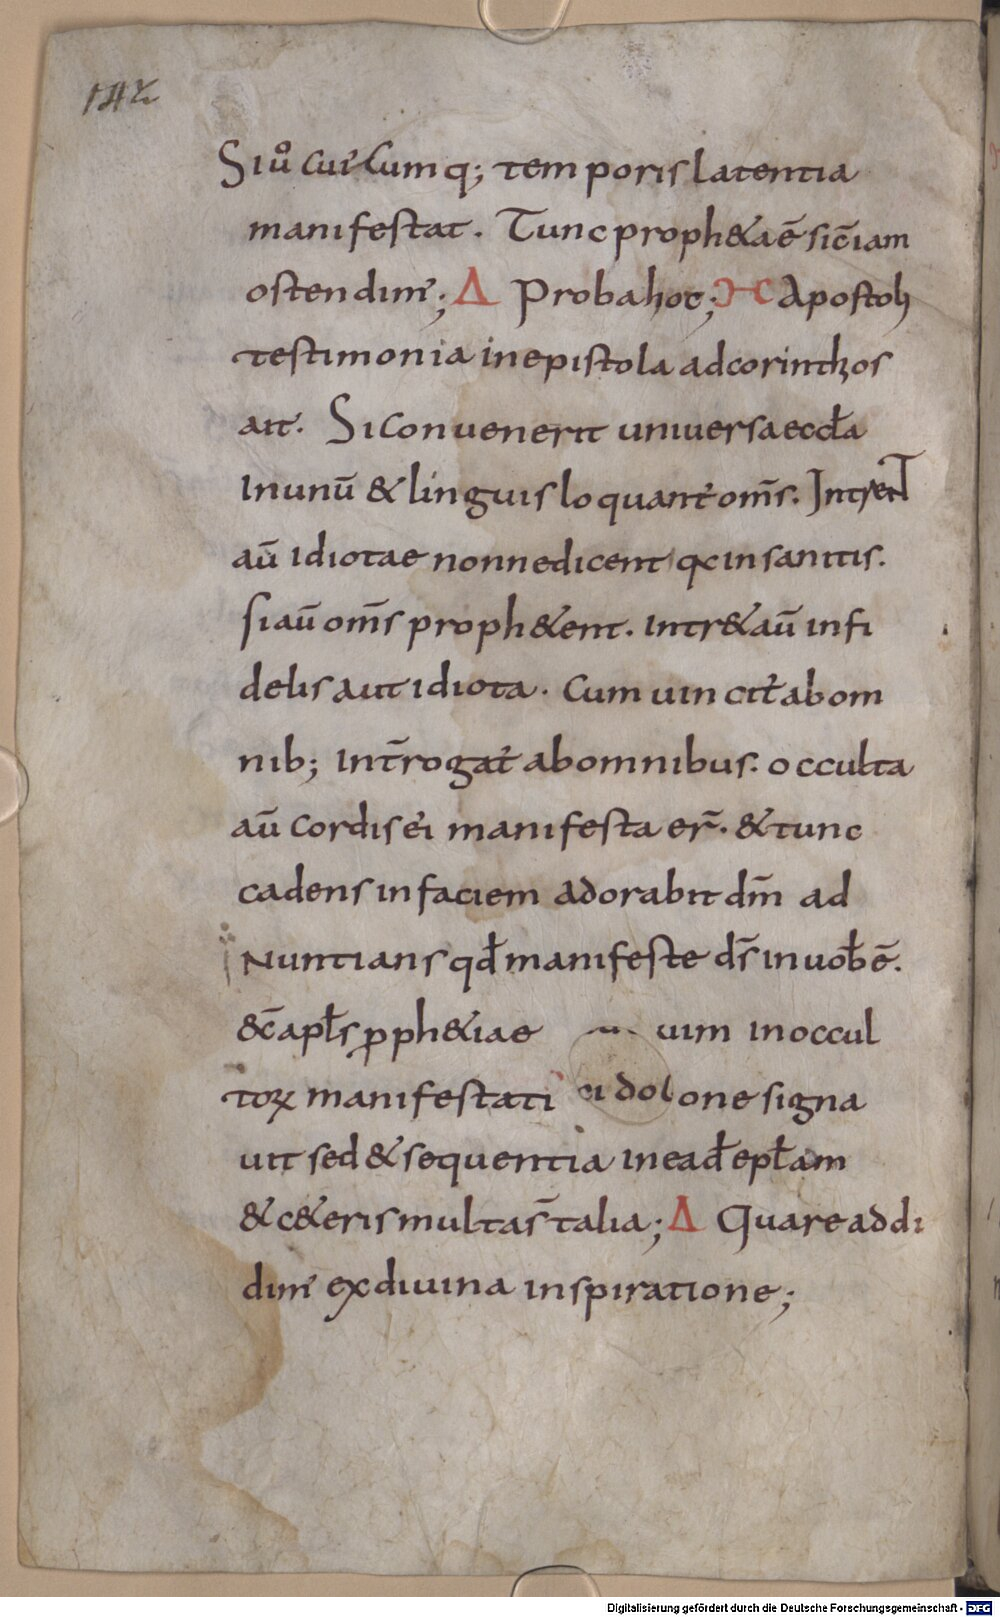 142
Siů cuiꝰcumq; temporis latentia
manifestat. Tunc proph&aē sic̄iam
ostendim̃; Δ Proba hoc; ϽϹ Apostoli
testimonia in epistola ad corinthios
ait. Si convenerit universa eccƚa
in unū & linguis loquantꝰ om̄s. IntrenT
aū idiotae nonne dicent qc insanitis.
si aū om̄s proph&ent. intr&aū infi
delis aut idiota. Cum vincit̃ ab om
nib; int̄rogat̃ ab omnibus. occulta
aū cordis ei manifesta er̄. & tunc
cadens in faciem adorabit dm̄ ad
nuntians qđ manifeste ds̄ in uob̄ ē.
&c̄ apƚs ꝓph&iae uim in occul
toꝝ manifestati one signa
uit sed & sequentia in eađ epƚam
& c&eris multas̄ talia; Δ Quare addi
dim̃ ex divina inspiratione;
Digitalisierung gefördert durch die Deutsche Forschungsgemeinschaft - DFG